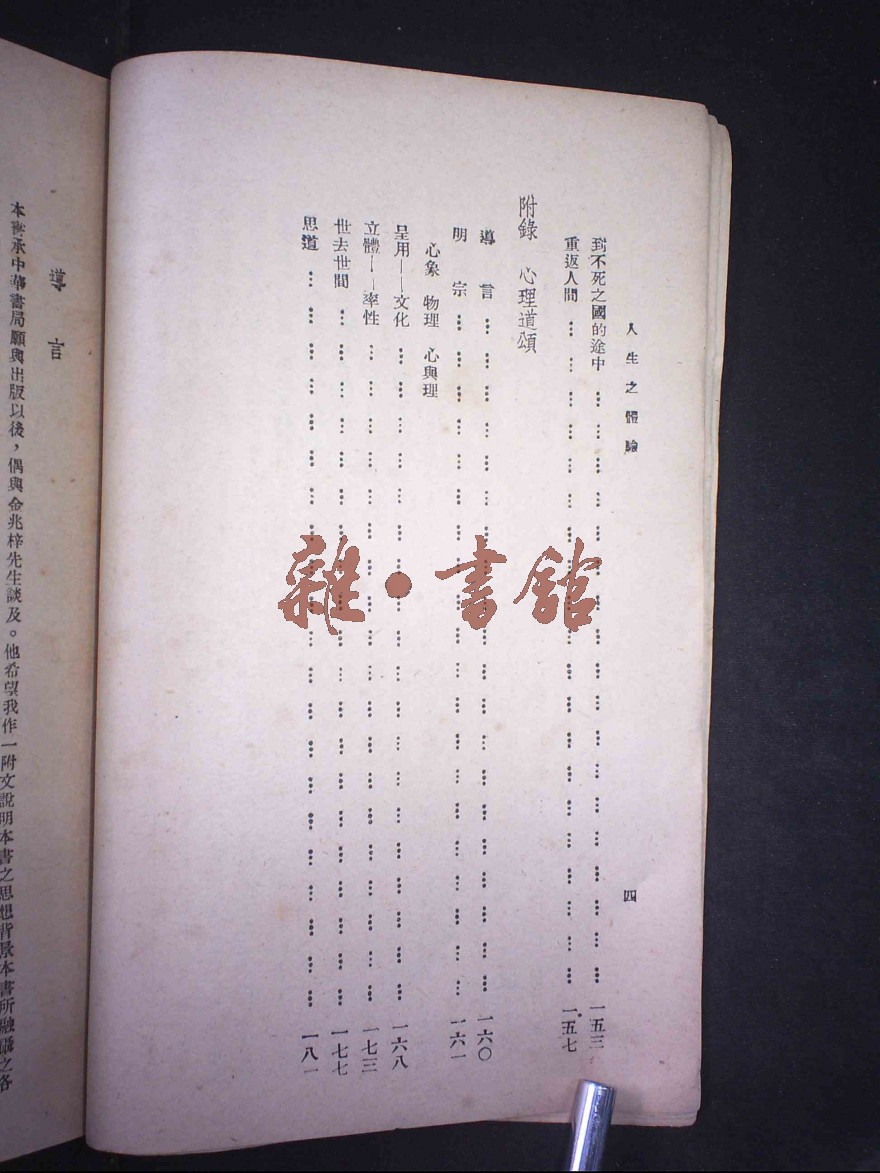 人生之體驗
四
到不死之國的途中 … … … … … … … … … … 一五三
重返人間 … … … … … … … … … … 一五七
附錄 心理道頌
導言 … … … … … … … … … … 一六〇
明宗 … … … … … … … … … … 一六一
心象 物理 心與理
呈用——文化 … … … … … … … … … … 一六八
立體——率性 … … … … … … … … … … 一七三
世去世間 … … … … … … … … … … 一七七
思道 … … … … … … … … … … 一八一
雜·書館
導言
本書承中華書局願與出版以後，偶與金兆梓先生談及。他希望我作一附文說明本書之思想背景本書所融攝之各